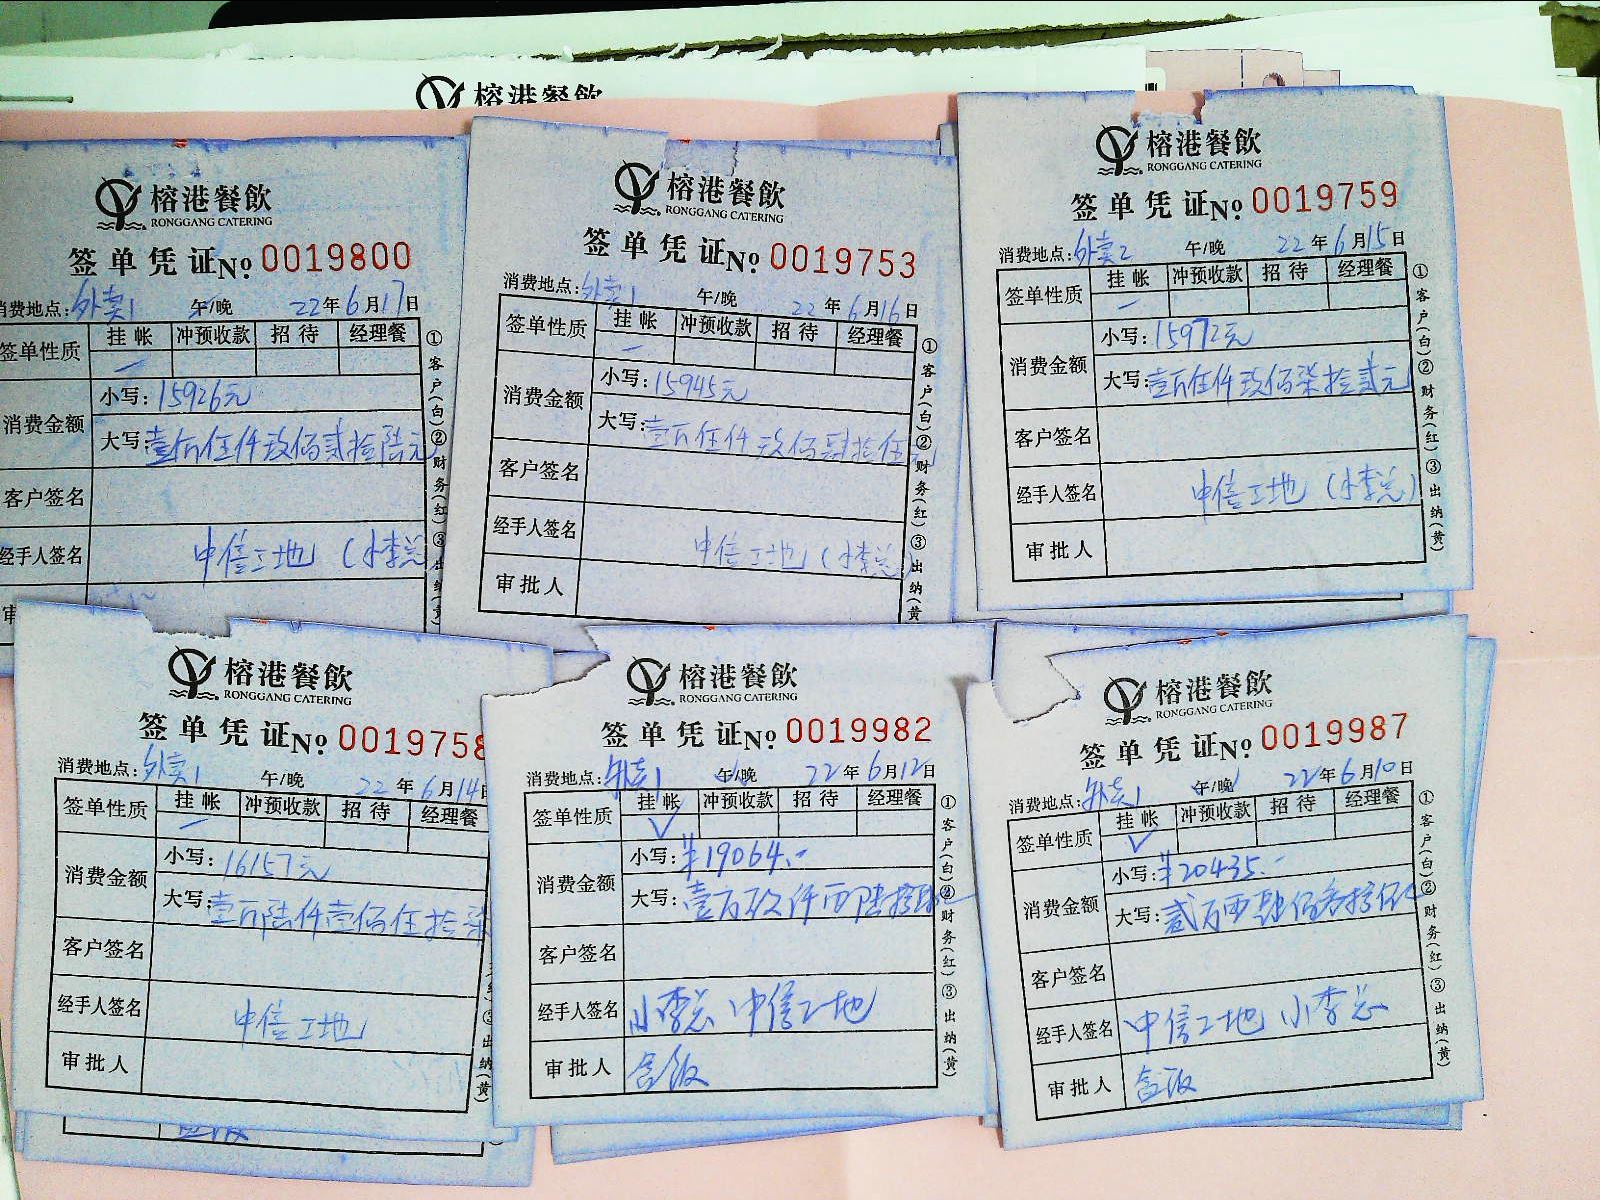 榕港餐飲
榕港餐飲
RONGGANG CATERING
签单凭证No. 0019800
消费地点:外卖1 午/晚 22年6月17日
签单性质 挂帐 冲预收款 招待 经理餐
消费金额
小写:15926元
大写:壹万伍仟玖佰贰拾陆元
客户签名
经手人签名 中信工地(小李总
审
①客户(白)②财务(红)③出纳(黄)
榕港餐飲
RONGGANG CATERING
签单凭证No. 0019753
消费地点:外卖1 午/晚 22年6月16日
签单性质 挂帐 冲预收款 招待 经理餐
消费金额
小写:15945元
大写:壹万伍仟玖佰肆拾伍元
客户签名
经手人签名 中信工地(小李总)
审批人
①客户(白)②财务(红)③出纳(黄)
榕港餐飲
RONGGANG CATERING
签单凭证No. 0019759
消费地点:外卖2 午/晚 22年6月15日
签单性质 挂帐 冲预收款 招待 经理餐
消费金额
小写:15972元
大写:壹万伍仟玖佰柒拾贰元
客户签名
经手人签名 中信工地(小李总)
审批人
①客户(白)②财务(红)③出纳(黄)
榕港餐飲
RONGGANG CATERING
签单凭证No. 0019758
消费地点:外卖1 午/晚 22年6月14日
签单性质 挂帐 冲预收款 招待 经理餐
消费金额
小写:16157元
大写:壹万陆仟壹佰伍拾柒
客户签名
经手人签名 中信工地
审批人
出纳(黄)
榕港餐飲
RONGGANG CATERING
签单凭证No. 0019982
消费地点:外卖1 午/晚 22年6月12日
签单性质 挂帐 冲预收款 招待 经理餐
消费金额
小写:¥19064.-
大写:壹万玖仟零陆拾肆元
客户签名
经手人签名 小李总 中信工地
审批人 盒饭
①客户(白)②财务(红)③出纳(黄)
榕港餐飲
RONGGANG CATERING
签单凭证No. 0019987
消费地点:外卖1 午/晚 22年6月10日
签单性质 挂帐 冲预收款 招待 经理餐
消费金额
小写:¥20435.-
大写:贰万零肆佰叁拾伍元
客户签名
经手人签名 中信工地 小李总
审批人 盒饭
①客户(白)②财务(红)③出纳(黄)